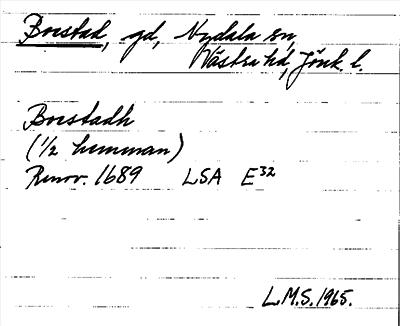 Borstad, gd, Nydala sn,
Västra hd, Jönk. l.
Borstadh
(1/2 hemman)
Renov. 1689 LSA E32
L.M.S. 1965.